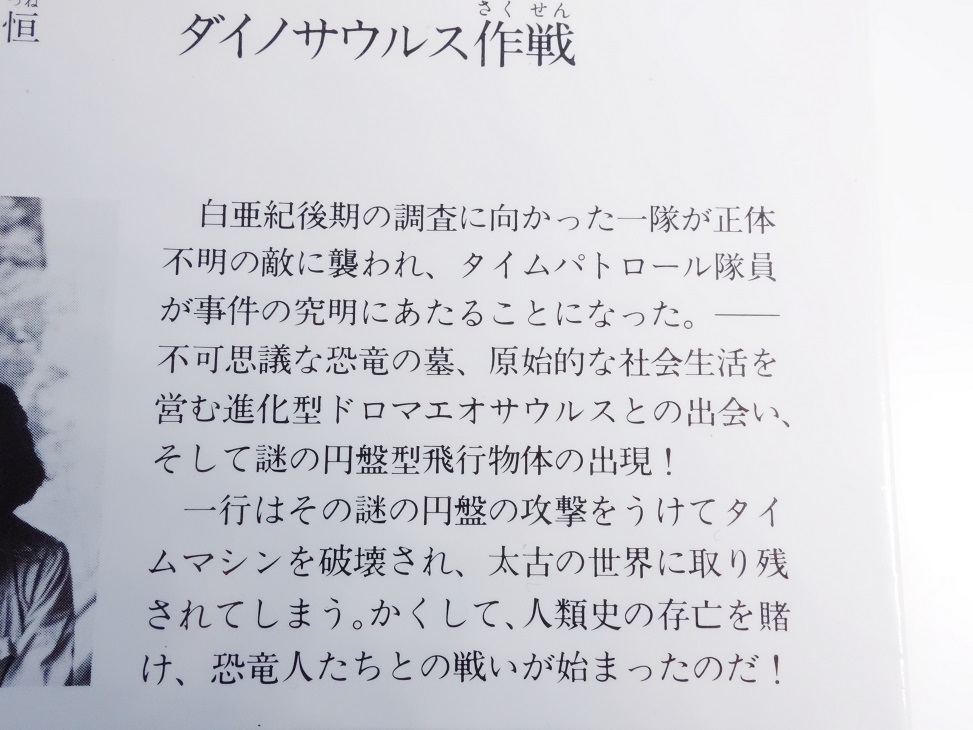 つね
恒
さくせん
ダイノサウルス作戦
白亜紀後期の調査に向かった一隊が正体
不明の敵に襲われ、タイムパトロール隊員
が事件の究明にあたることになった。——
不可思議な恐竜の墓、原始的な社会生活を
営む進化型ドロマエオサウルスとの出会い、
そして謎の円盤型飛行物体の出現！
一行はその謎の円盤の攻撃をうけてタイ
ムマシンを破壊され、太古の世界に取り残
されてしまう。かくして、人類史の存亡を賭
け、恐竜人たちとの戦いが始まったのだ！